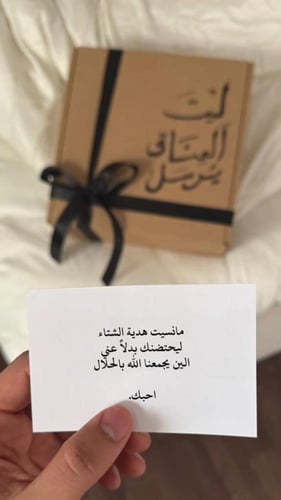 ليت
العناق
يرسل
مانسيت هدية الشتاء
ليحتضنك بدلاً عني
الين يجمعنا الله بالحلال
احبك.